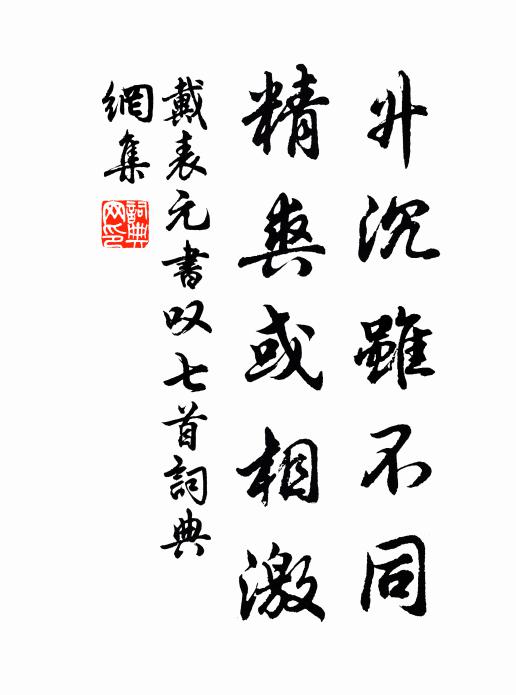 升沉雖不同
精爽或相激
戴表元書叹七首詞典
網集
詞典網印